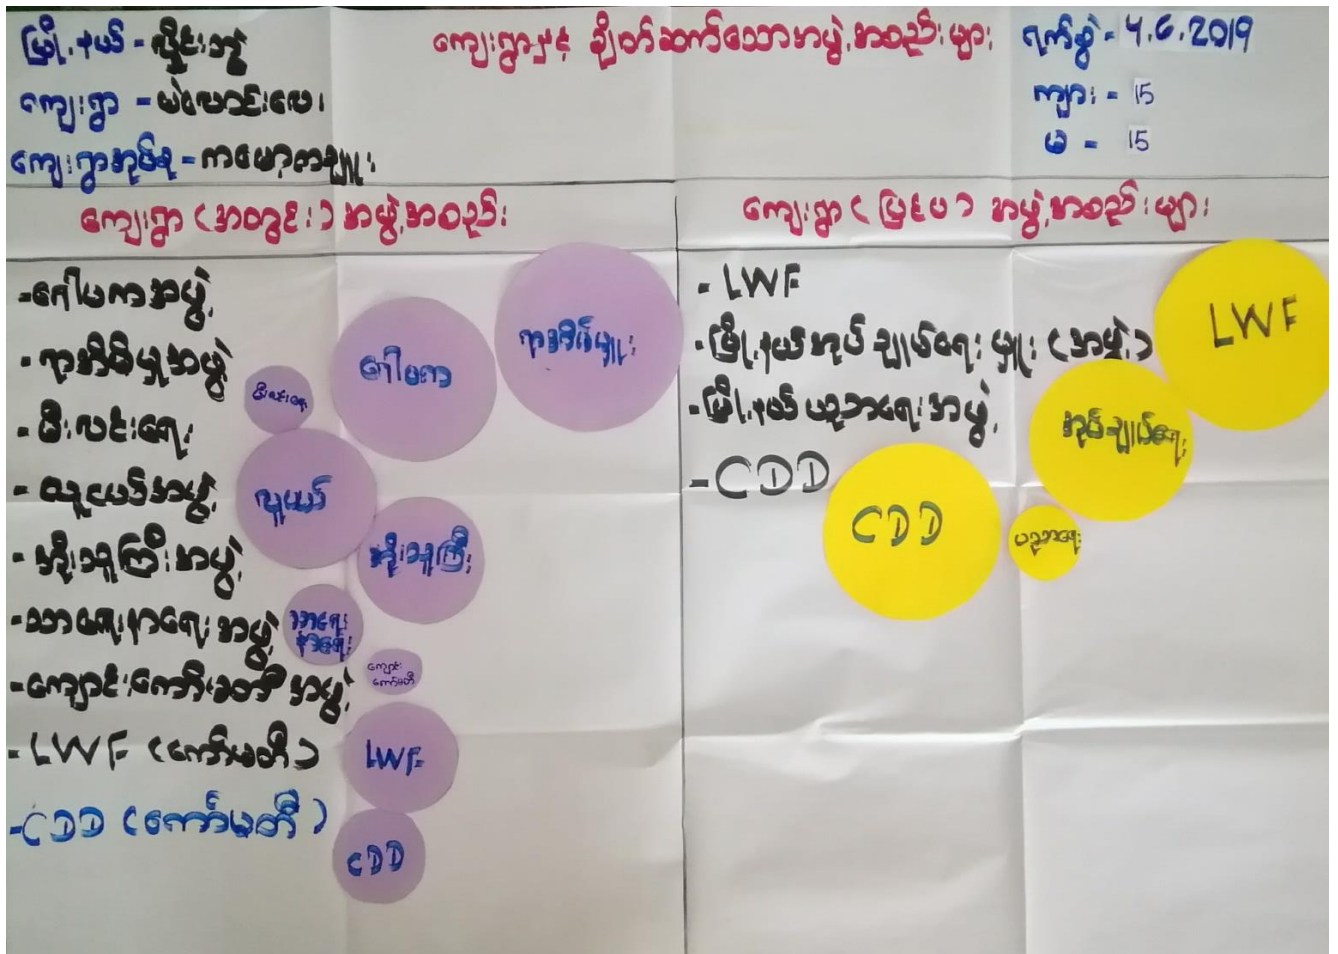 မြို့နယ် - လှိုင်းဘွဲ
ကျေးရွာ - မဲလောင်းလေး
ကျေးရွာအုပ်စု - ကမော့တချူး
ကျေးရွာနှင့် ချိတ်ဆက်သောအဖွဲ့အစည်းများ
ရက်စွဲ - 4.6.2019
ကျား = 15
မ = 15
ကျေးရွာ (အတွင်း) အဖွဲ့အစည်း
- ဂေါပကအဖွဲ့
- ရာအိမ်မှုးအဖွဲ့
- မီးလင်းရေး
- လူငယ်အဖွဲ့
- အိုးသူကြီးအဖွဲ့
- သာရေးနာရေးအဖွဲ့
- ကျောင်းကော်မတီအဖွဲ့
- LWF (ကော်မတီ)
- CDD (ကော်မတီ)
ရာအိမ်မှူး
ဂေါပက
မီးလင်းရေး
လူငယ်
အိုးသူကြီး
သာရေး
နာရေး
ကျောင်း
ကော်မတီ
LWF
CDD
ကျေးရွာ (ပြင်ပ) အဖွဲ့အစည်းများ
- LWF
- မြို့နယ်အုပ်ချုပ်ရေးမှူး (အဖွဲ့)
- မြို့နယ်ပညာရေးအဖွဲ့
- CDD
LWF
အုပ်ချုပ်ရေး
CDD
ပညာရေး